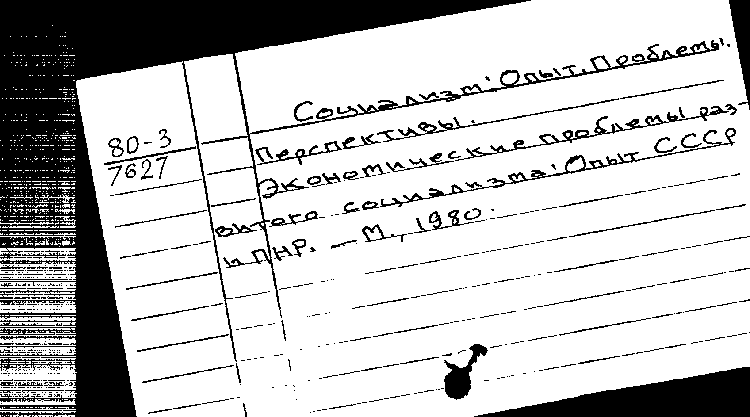 Социализм: Опыт. Проблемы.
Перспективы.
80-3
7627
Экономические проблемы раз-
витого социализма: Опыт СССР
и ПНР. — М., 1980.